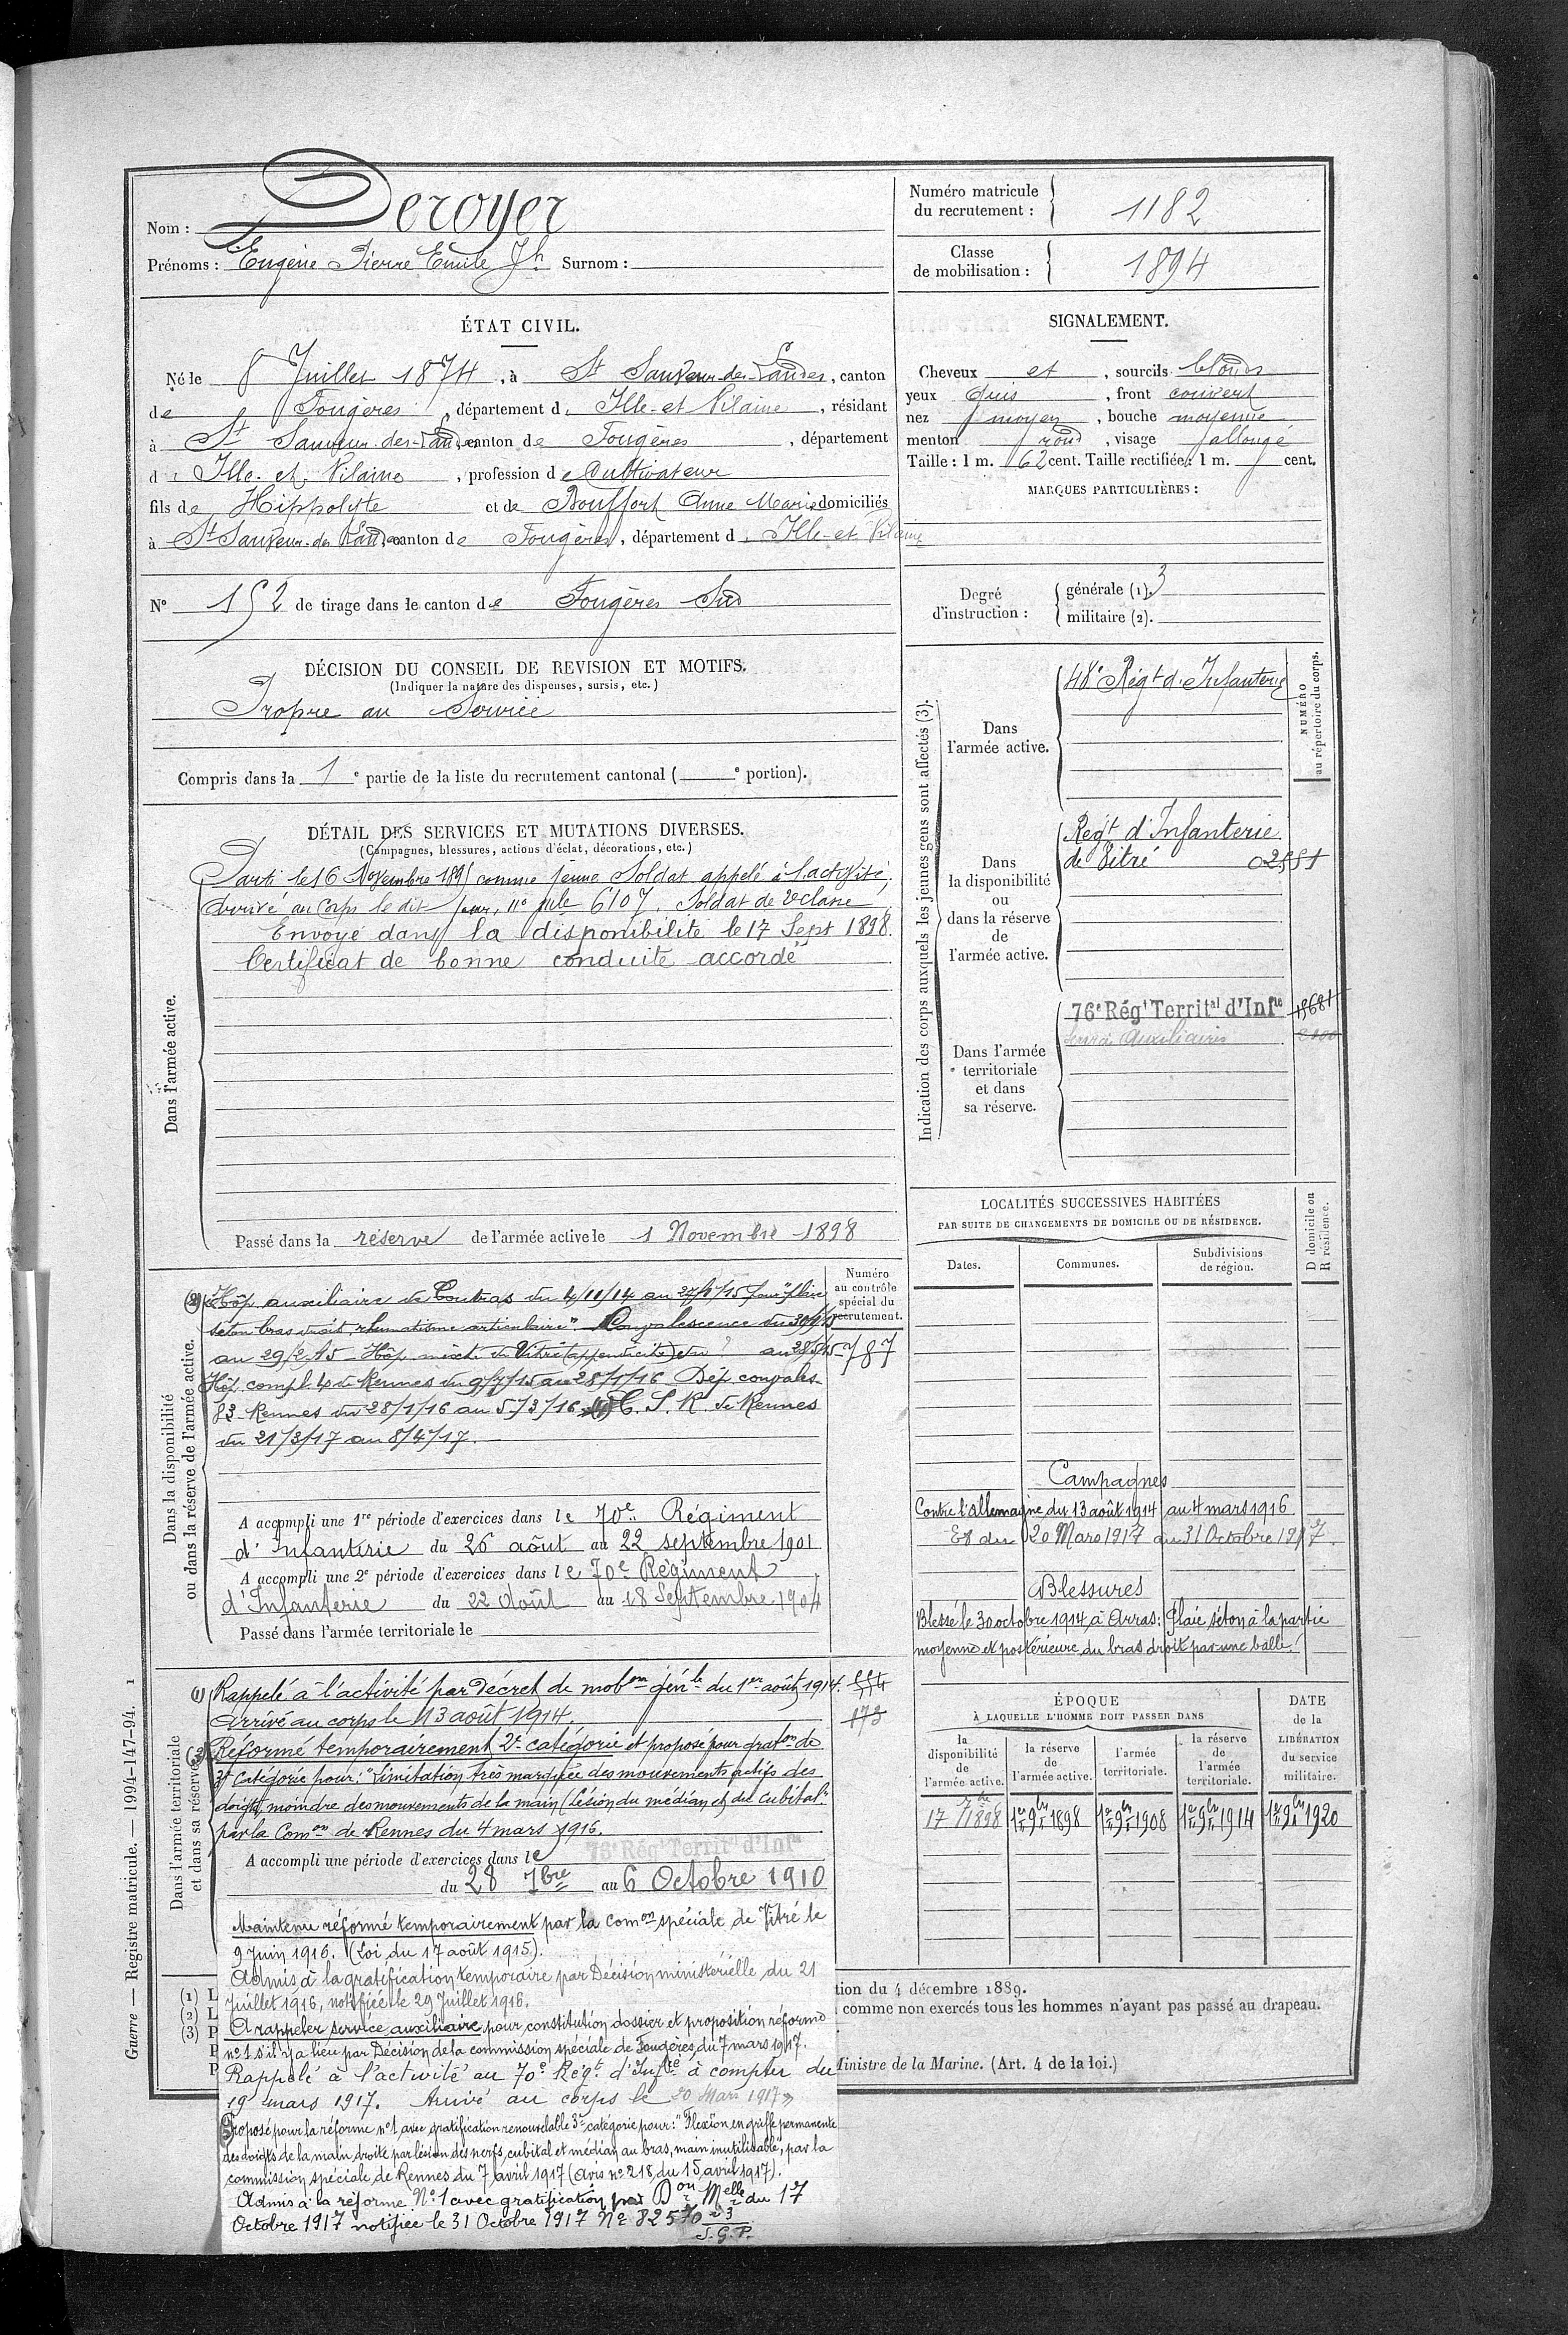 Nom : Deroyer
Prénoms : Eugène Pierre Emile Jh Surnom :
Numéro matricule
du recrutement : 1182
Classe
de mobilisation : 1894
ÉTAT CIVIL.
Né le 8 Juillet 1874, à St Sauveur-des-Landes, canton
de Fougères, département d' Ille-et-Vilaine, résidant
à St Sauveur-des-Landes, canton de Fougères, département
d' Ille-et-Vilaine, profession de Cultivateur
fils de Hippolyte et de Bouffort Anne Marie domiciliés
à St Sauveur-des-Landes, canton de Fougères, département d' Ille-et-Vilaine
N° 152 de tirage dans le canton de Fougères Sud
SIGNALEMENT.
Cheveux et, sourcils blonds
yeux gris, front couvert
nez moyen, bouche moyenne
menton rond, visage allongé
Taille : 1 m. 62 cent. Taille rectifiée : 1 m. cent.
MARQUES PARTICULIÈRES :
Degré
d'instruction :
générale (1). 3
militaire (2).
DÉCISION DU CONSEIL DE REVISION ET MOTIFS.
(Indiquer la nature des dispenses, sursis, etc.)
Propre au Service
Compris dans la 1e partie de la liste du recrutement cantonal (e portion).
DÉTAIL DES SERVICES ET MUTATIONS DIVERSES.
(Campagnes, blessures, actions d'éclat, décorations, etc.)
Dans l'armée active.
Parti le 16 Novembre 1895 comme jeune Soldat appelé à l'activité,
Arrivé au Corps le dit jour, n° mle 6107. Soldat de 2e classe
Envoyé dans la disponibilité le 17 Sept 1898.
Certificat de bonne conduite accordé
Passé dans la réserve de l'armée active le 1 Novembre 1898
Indication des corps auxquels les jeunes gens sont affectés (3).
NUMÉRO
au répertoire du corps.
Dans
l'armée active.
48e Régt d'Infanterie
Dans
la disponibilité
ou
dans la réserve
de
l'armée active.
Regt d'Infanterie
de Vitré
Dans l'armée
territoriale
et dans
sa réserve.
76e Régt Territal d'Infie
Auxiliaire
LOCALITÉS SUCCESSIVES HABITÉES
PAR SUITE DE CHANGEMENTS DE DOMICILE OU DE RÉSIDENCE.
D domicile ou
R résidence.
Dates.
Communes.
Subdivisions
de région.
Dans la disponibilité
ou dans la réserve de l'armée active.
Numéro
au contrôle
spécial du
recrutement.
787
(2) Hôp. auxiliaire de Coutras du 4/11/14 au 27/1/15 pour "plaie
séton bras droit, rhumatisme articulaire". Convalescence du 30/1/15
au 29/2/15 - Hôp. mixte de Vitré (appendicite) du ? au 28/5/15
Hôp. compl. 4 de Rennes du 9/7/15 au 28/1/16 Dép. convales.
83 Rennes du 28/1/16 au 5/3/16 (4) C. S. R. de Rennes
du 21/3/17 au 8/4/17.
A accompli une 1re période d'exercices dans le 70e Régiment
d'Infanterie du 26 août au 22 septembre 1901
A accompli une 2e période d'exercices dans le 70e Régiment
d'Infanterie du 22 Août au 18 Septembre 1904
Passé dans l'armée territoriale le
Campagnes
Contre l'Allemagne du 13 août 1914 au 4 mars 1916
Et du 20 Mars 1917 au 31 Octobre 1917.
Blessures
Blessé le 30 octobre 1914, à Arras : Plaie séton à la partie
moyenne et postérieure du bras droit par une balle.
Dans l'armée territoriale
et dans sa réserve.
173
(1) Rappelé à l'activité par décret de mobon génle du 1er août 1914.
Arrivé au corps le 13 août 1914.
(3) Réformé temporairement 2e catégorie et proposé pour graton de
3e Catégorie pour : "Limitation très marquée des mouvements actifs des
doigts, moindre des mouvements de la main (Lésion du médian et du cubital"
par la Comon de Rennes du 4 mars 1916.
A accompli une période d'exercices dans le 76e Régt Territal d'Infie
du 28 7bre au 6 Octobre 1910
Maintenu réformé temporairement par la Comon spéciale de Vitré le
9 Juin 1916. (Loi du 17 août 1915).
Admis à la gratification temporaire par Décision ministérielle du 21
Juillet 1916, notifiée le 29 Juillet 1916.
A rappeler service auxiliaire pour constitution dossier et proposition réforme
n° 1 s'il y a lieu par Décision de la commission spéciale de Fougères, du 7 mars 1917.
Rappelé à l'activité au 70e Régt d'Infie à compter du
19 mars 1917. Arrivé au corps le 20 Mars 1917
Proposé pour la réforme n° 1 avec gratification renouvelable 3e catégorie pour : "Flexion en griffe permanente
des doigts de la main droite par lésion des nerfs cubital et médian au bras, main inutilisable", par la
commission spéciale de Rennes du 7 avril 1917 (avis n° 218 du 15 avril 1917).
Admis à la réforme N° 1 avec gratification par Don Melle du 17
Octobre 1917 notifiée le 31 Octobre 1917 N° 82570
S.G.P.
ÉPOQUE
À LAQUELLE L'HOMME DOIT PASSER DANS
DATE
de la
LIBÉRATION
du service
militaire.
la
disponibilité
de
l'armée active.
la réserve
de
l'armée active.
l'armée
territoriale.
la réserve
de
l'armée
territoriale.
17 7bre 1898
1er 9bre 1898
1er 9bre 1908
1er 9bre 1914
1er 9bre 1920
(1) L
(2) L
(3) P
P
P
tion du 4 décembre 1889.
comme non exercés tous les hommes n'ayant pas passé au drapeau.
Ministre de la Marine. (Art. 4 de la loi.)
Guerre — Registre matricule. — 1994-147-94. 1